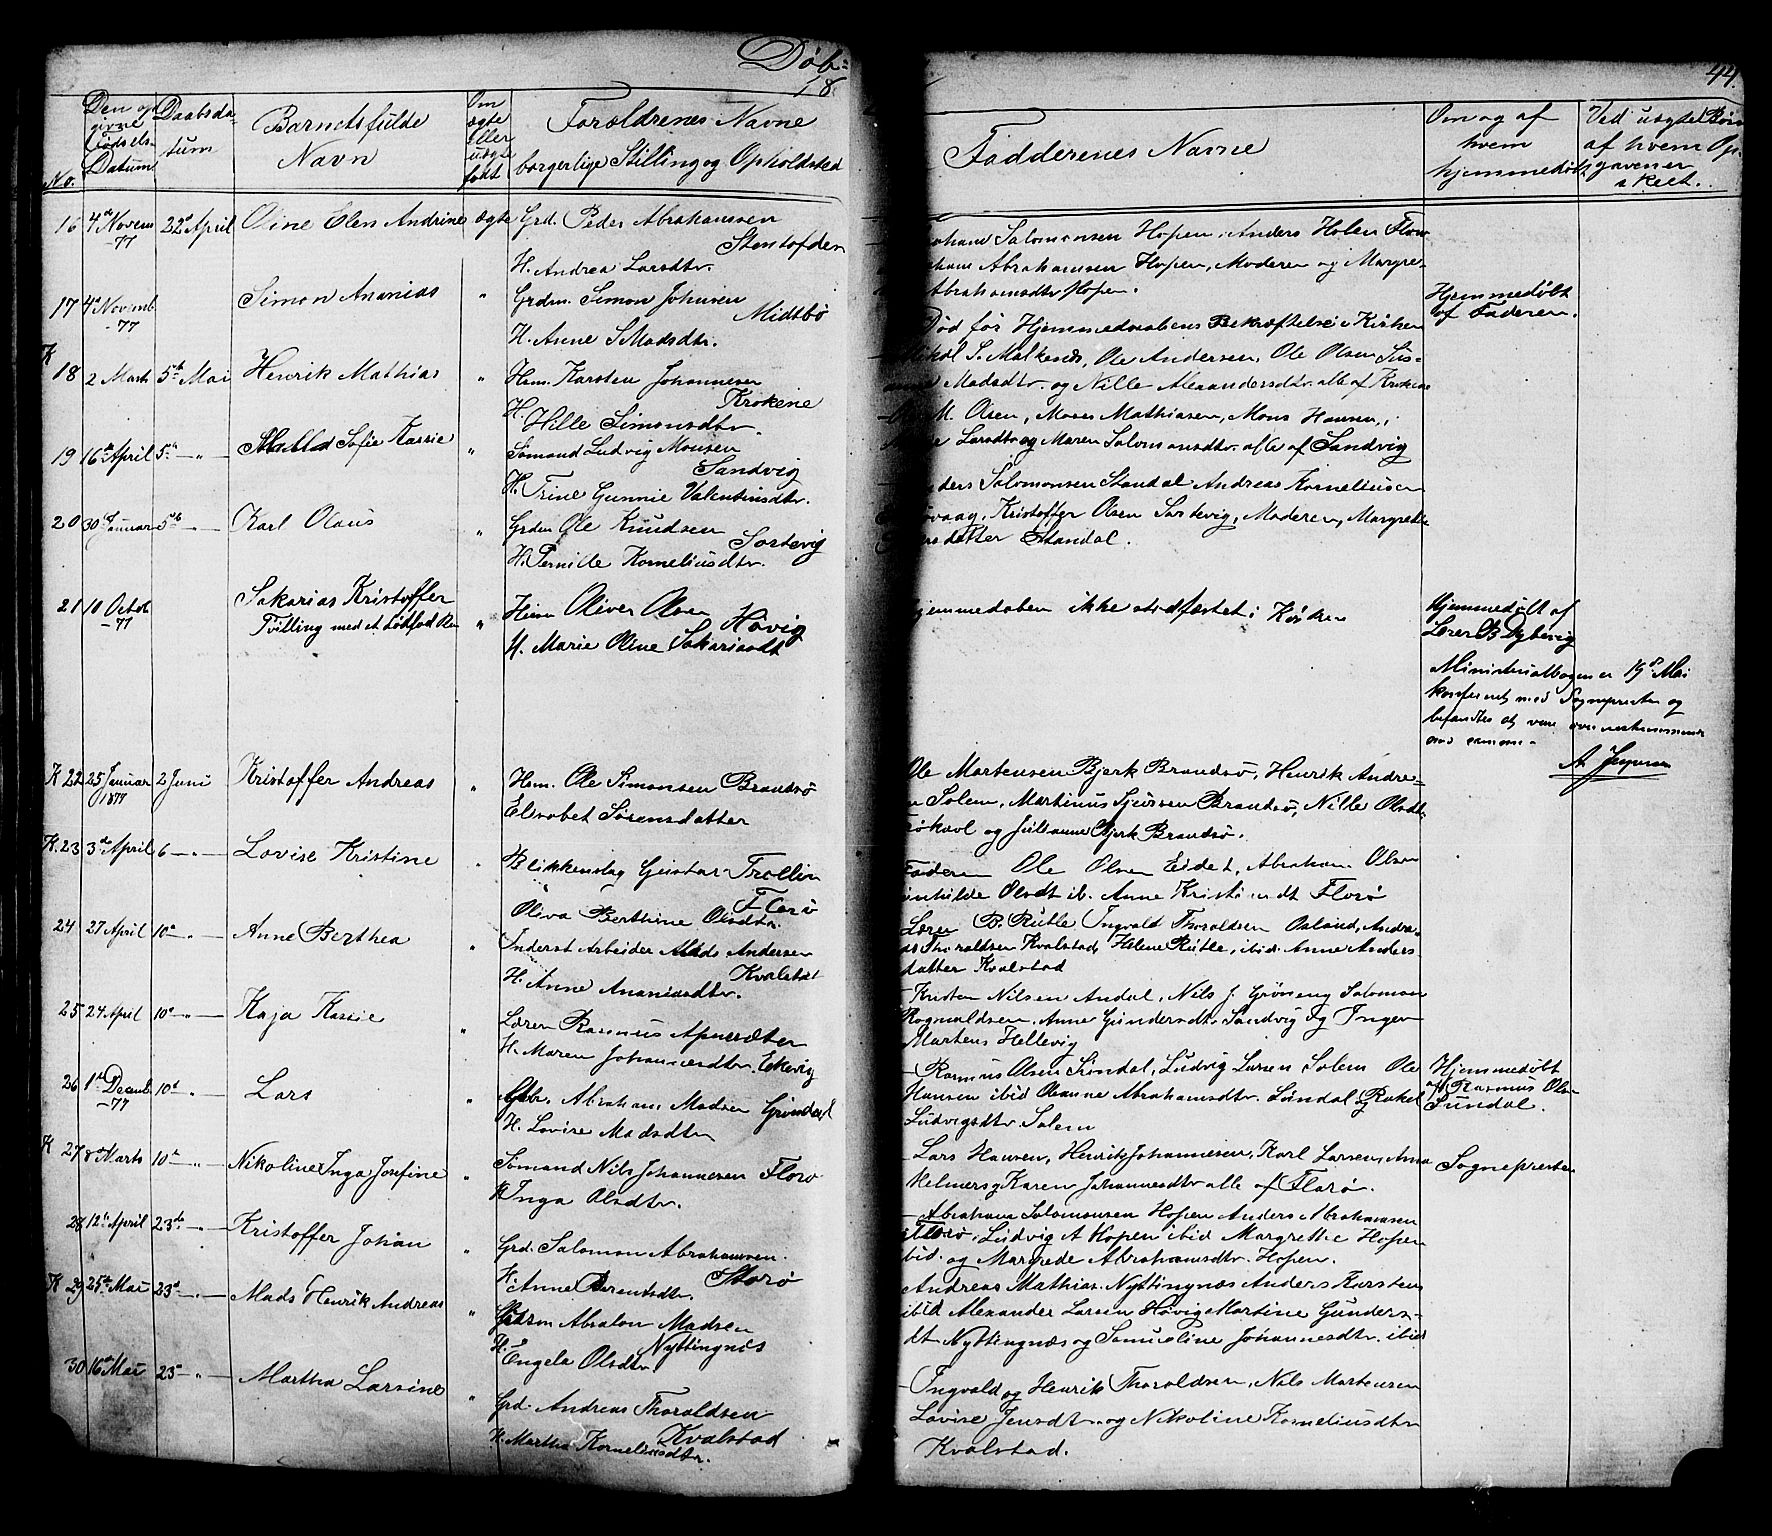 Døb-
18
44.
No.
Den op
givne
Fødsels-
Datum
Daabsda-
tum
Barnets fulde
Navn
Om
ægte
eller
uægte
født
Forældrenes Navne
borgerlige Stilling og Opholdssted
Fadderenes Navne
Om og af
hvem
hjemmedøbt
Ved uægte Børn
af hvem Op-
gaven er
skeet.
16 4de Novem 22d April Oline Elen Andrine ægte Grd. Peder Abrahamsen
-77
Stensfden
H. Andrea Larsdtr.
Salomonsen Hopen, Anders Holen Florø
Abrahamsen Hopen, Moderen og Margre-
Abrahamsdtr Hopen.
17 4de Novemb Simon Ananias " Grdm. Simon Johnsen
-77
Midtbø
H. Anne S Madsdtr.
Død før Hjemmedaabens Bekræftelse i Kirken
Hjemmedøbt
af Faderen.
K 18 2 Marts 5te Mai Henrik Mathias " Hsm. Karsten Johannesen
Krokene
H. Hille Simonsdtr.
Mikal S. Malkenes, Ole Andersen, Ole Olsen Sus-
Madsdtr. og Nille Alexandersdtr. alle af Krokene
19 16de April 5te - " - Sofie Kassie " Sømand Ludvig Monsen
Sandvig
H. Trine Gunnie Valentinsdtr.
M. Olsen, Moses Mathiasen, Mons Hansen,
Larsdtr og Maren Salomonsdtr. alle af Sandvig
20 30 Januar 5te - Karl Olaus " Grdm Ole Knudsen
Sortevig
H. Pernille Korneliusdtr.
Salomonsen Standal Andreas Korneliusen
Kristoffer Olsen Sortevig, Moderen, Margrethe
datter Standal.
21 10 Octob Sakarias Kristoffer " Hsm Oliver Olsen Høvig
-77 Tvilling med et dødfød
H. Marie Oline Sakariasdt
Hjemmedaben ikke stadfæstet i Kirken
Hjemmedøbt af
Lærer B Dybevig
Ministerialbogen er 19de Mai
konfereret med Sognepresten og
befandtes at være overensstemmende
med samme.
A Jespersen
K 22 25 Januar 2 Juni Kristoffer Andreas " Hsm. Ole Simonsen Brandsø
1877
Elisabet Sørensdatter
Ole Mortensen Bjerk Brandsø, Henrik Andre-
Solem, Martinus Sjursen Brandsø, Nille Olsdtr
og Julianne Bjerk Brandsø.
K. 23 3de April 6 - " - Lovise Kristine " Blikkenslag Gustav Trollin
Florø
Oliva Berthine Olsdtr.
Faderen Ole Olsen Eidet, Abraham Olsen
Olsdt ib. Anne Kristi dt Florø
24 27 April 10de - " - Anne Berthea " Inderst Arbeider Mads Andersen
Kvalstad
H. Anne Ananiasdtr.
Lærer B. Rutle Ingvald Thoraldsen Osland, Andre-
as Thoraldsen Kvalstad, Helene Rutle, ibid. Anne Anders-
datter Kvalstad
25 24 April 10de - " - Kaja Kassie " Lærer Rasmus Apnesæter
H. Maren Johannesdtr. Eikevig
Kristen Nilsen Andal, Nils J. Grøneng Salomon
Rognaldsen, Anne Gundersdtr Sandvig og Inger
Martens Hellevig
26 1de Decemb 10de - " - Lars " Gbr. Abraham Madsen Grøndal
-77
H. Lovise Madsdtr
Rasmus Olsen Sundal, Ludvig Larsen Solem Ole
Hansen ibid Oleanne Abrahamsdtr. Sundal og Rakel
Ludvigsdtr. Solem
Hjemmedøbt
af Rasmus Olsen
Sundal.
K 27 8de Marts 10de - " - Nikoline Inga Josefine " Sømand Nils Johannesen Florø
H Inga Olsdtr.
Lars Hansen, Henrik Johannesen, Karl Larsen, Anna
Helmers og Karen Johannesdtr alle af Florø.
Sognepresten
28 12te April 23de - " - Kristoffer Johan " Grd. Salomon Abrahamsen.
H. Anne Berentsdtr. Storø
Abraham Salomonsen Hopen Anders Abrahamsen
Florø, Ludvig A Hopen ibid Margrethe Hopen
ibid. og Margrede Abrahamsdtr. Hopen.
K 29 25de Mai 23de - " - Mads Henrik Andreas " Absalon Madsen
Nyttingnæs
H. Engela Olsdtr
Andreas Mathias. Nyttingnæs Anders Karsten
ibid Alexander Larsen Høvig Martine Gunders-
dt Nyttingnæs og Samueline Johannesdtr. ibid
30 16de Mai 23 - " - Martha Larsine " Grd. Andreas Thoraldsen
Kvalstad
H. Martha Korneliusdtr.
Ingvald og Henrik Thoraldsen, Nils Martensen
Lovise Jensdt. og Nikoline Korneliusdtr
Kvalstad.